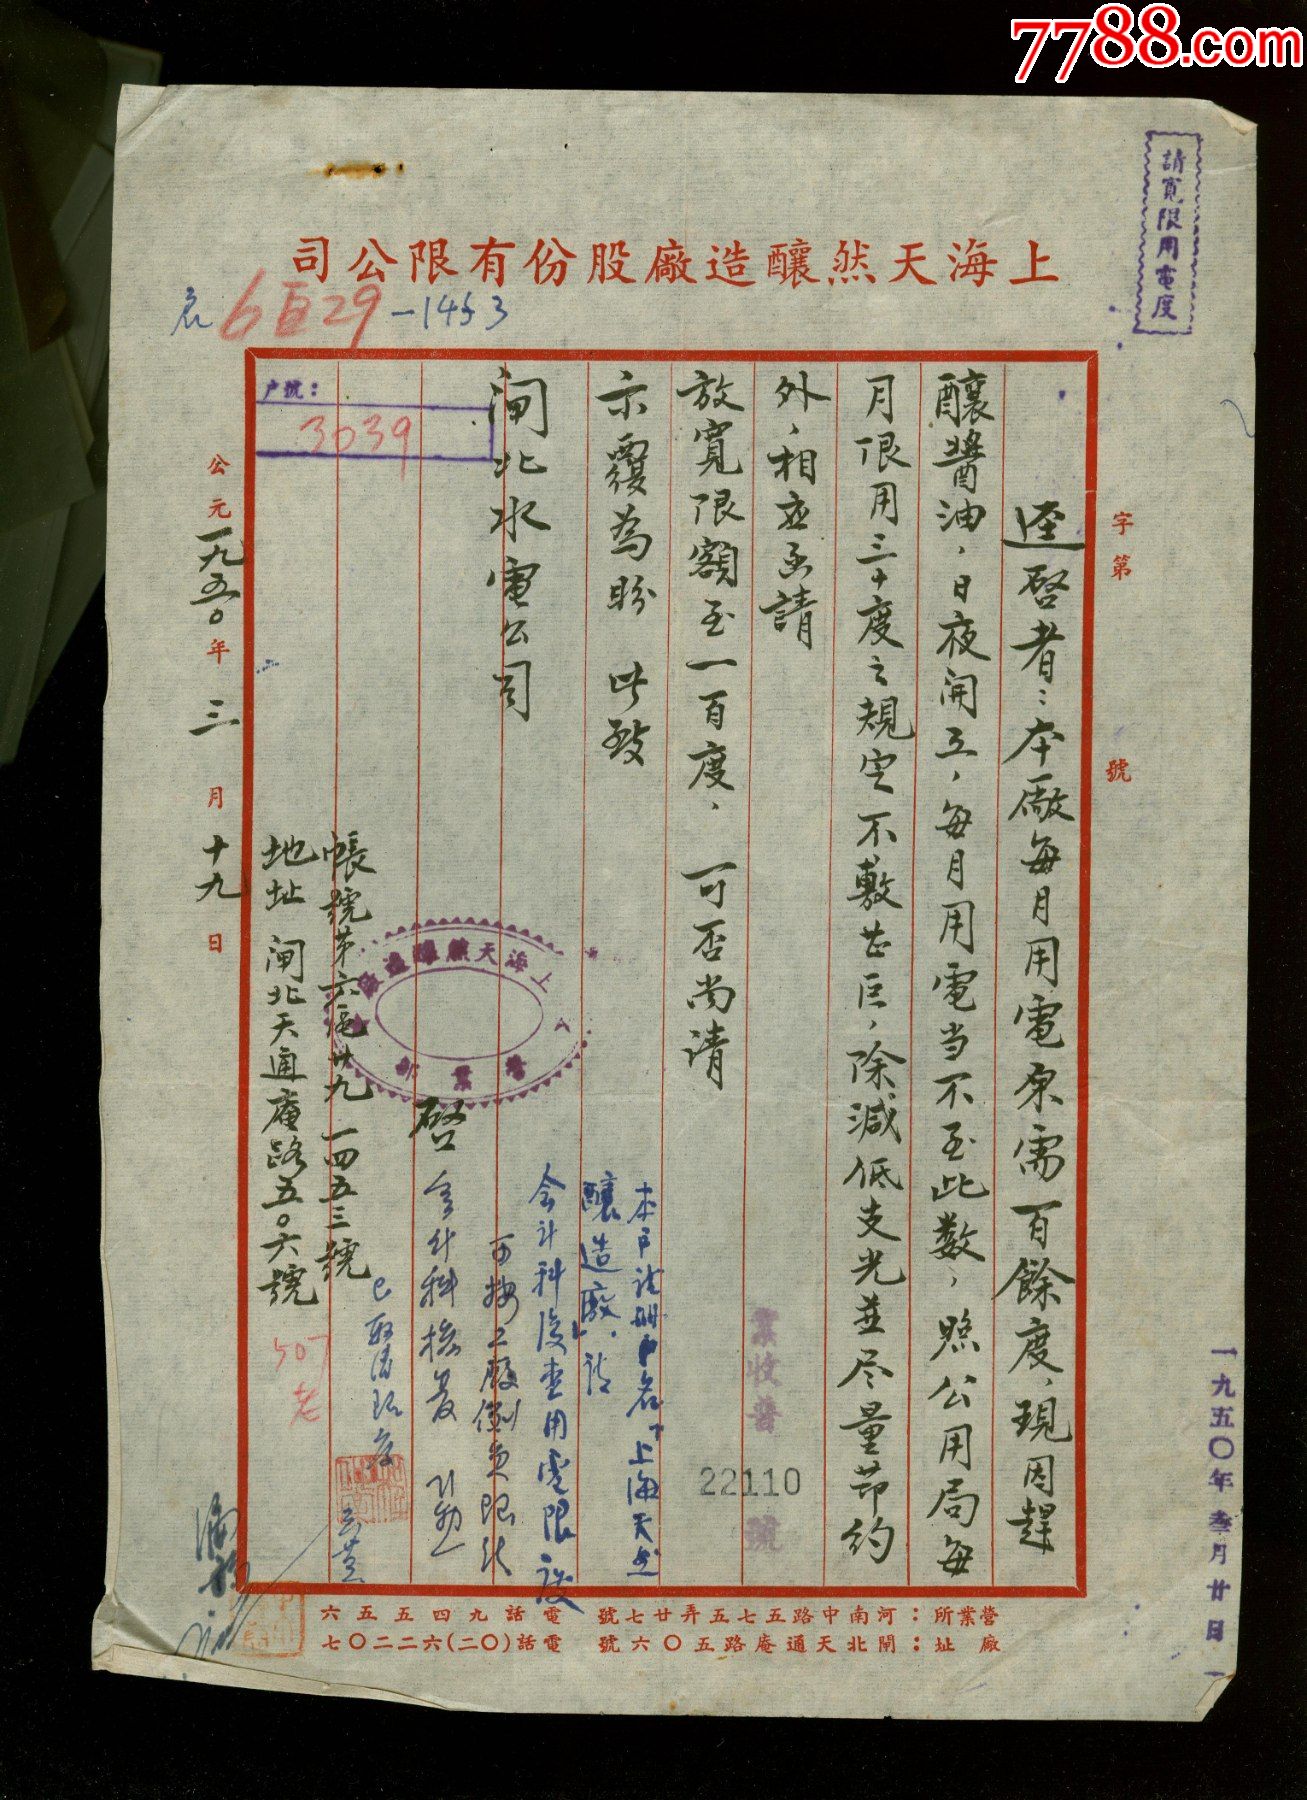 7788.com
請寬限用電度
上海天然釀造廠股份有限公司
6百29-1453
戶號：
3039
字第　　號
逕啓者：本廠每月用電原需百餘度，現因趕
釀醬油，日夜開工，每月用電当不至此数，照公用局每
月限用三十度之規定不敷甚巨，除減低支光並尽量节约
外，相应函請
放寬限額至一百度，可否尚请
示覆為盼　此致
閘北水電公司
上海天然釀造廠
營業部
啓
帳號第六區廿九 一四五三號
地址 闸北天通庵路五〇六號
公元一九五〇年三月十九日
本戶註册户名「上海天然
釀造廠」，請
会计科復查用電限波
可按工廠例免限
会计科
507
業收普
22110
號
一九五〇年叁月廿日
營業所：河南中路五七五弄廿七號　電話九四五五六
廠址：閘北天通庵路五〇六號　電話(〇二)六二二〇七